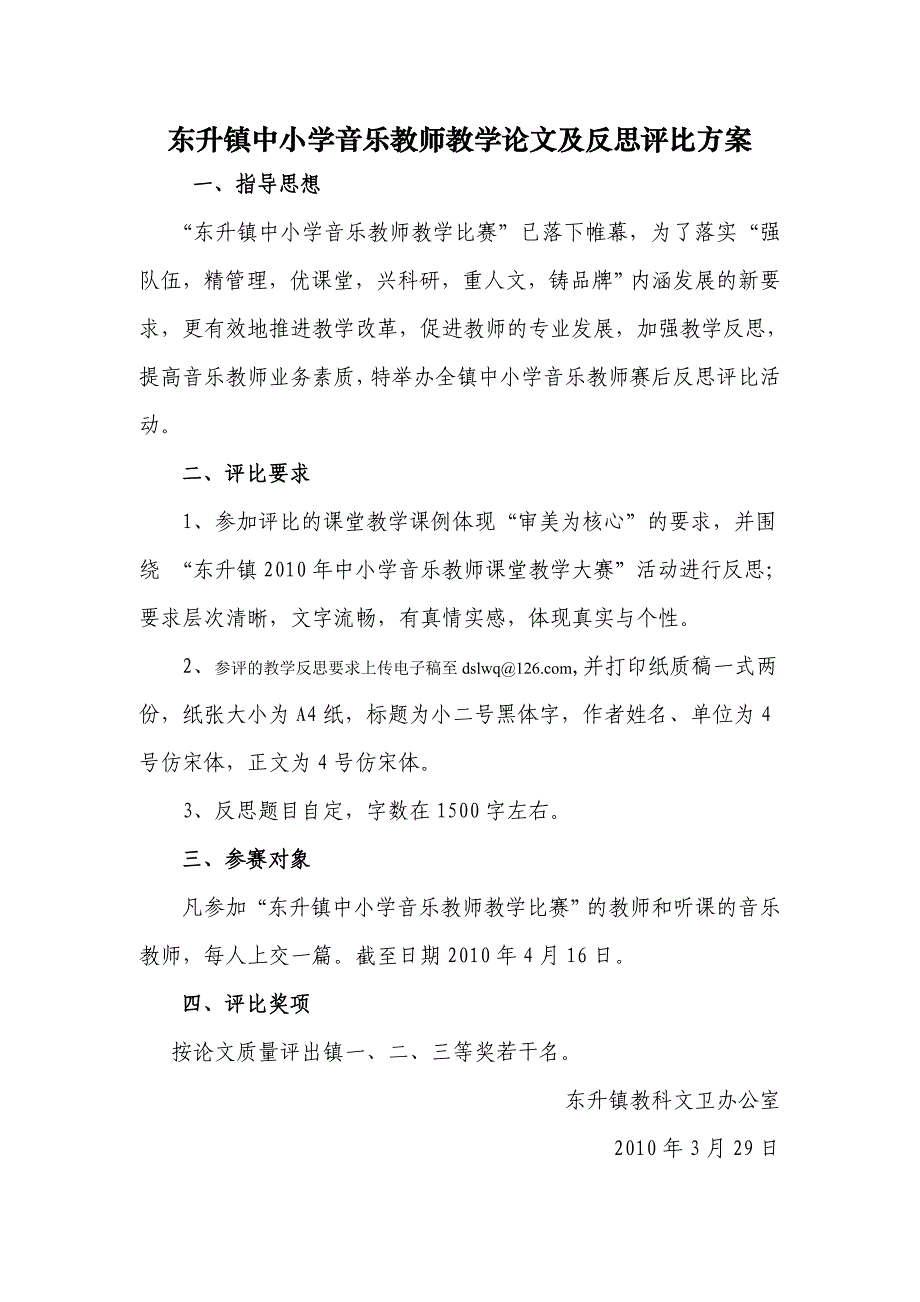 东升镇中小学音乐教师教学论文及反思评比方案
一、指导思想
“东升镇中小学音乐教师教学比赛”已落下帷幕，为了落实“强
队伍，精管理，优课堂，兴科研，重人文，铸品牌”内涵发展的新要
求，更有效地推进教学改革，促进教师的专业发展，加强教学反思，
提高音乐教师业务素质，特举办全镇中小学音乐教师赛后反思评比活
动。
二、评比要求
1、参加评比的课堂教学课例体现“审美为核心”的要求，并围
绕 “东升镇 2010 年中小学音乐教师课堂教学大赛”活动进行反思；
要求层次清晰，文字流畅，有真情实感，体现真实与个性。
2、参评的教学反思要求上传电子稿至 dslwq@126.com，并打印纸质稿一式两
份，纸张大小为 A4 纸，标题为小二号黑体字，作者姓名、单位为 4
号仿宋体，正文为 4 号仿宋体。
3、反思题目自定，字数在 1500 字左右。
三、参赛对象
凡参加“东升镇中小学音乐教师教学比赛”的教师和听课的音乐
教师，每人上交一篇。截至日期 2010 年 4 月 16 日。
四、评比奖项
按论文质量评出镇一、二、三等奖若干名。
东升镇教科文卫办公室
2010 年 3 月 29 日